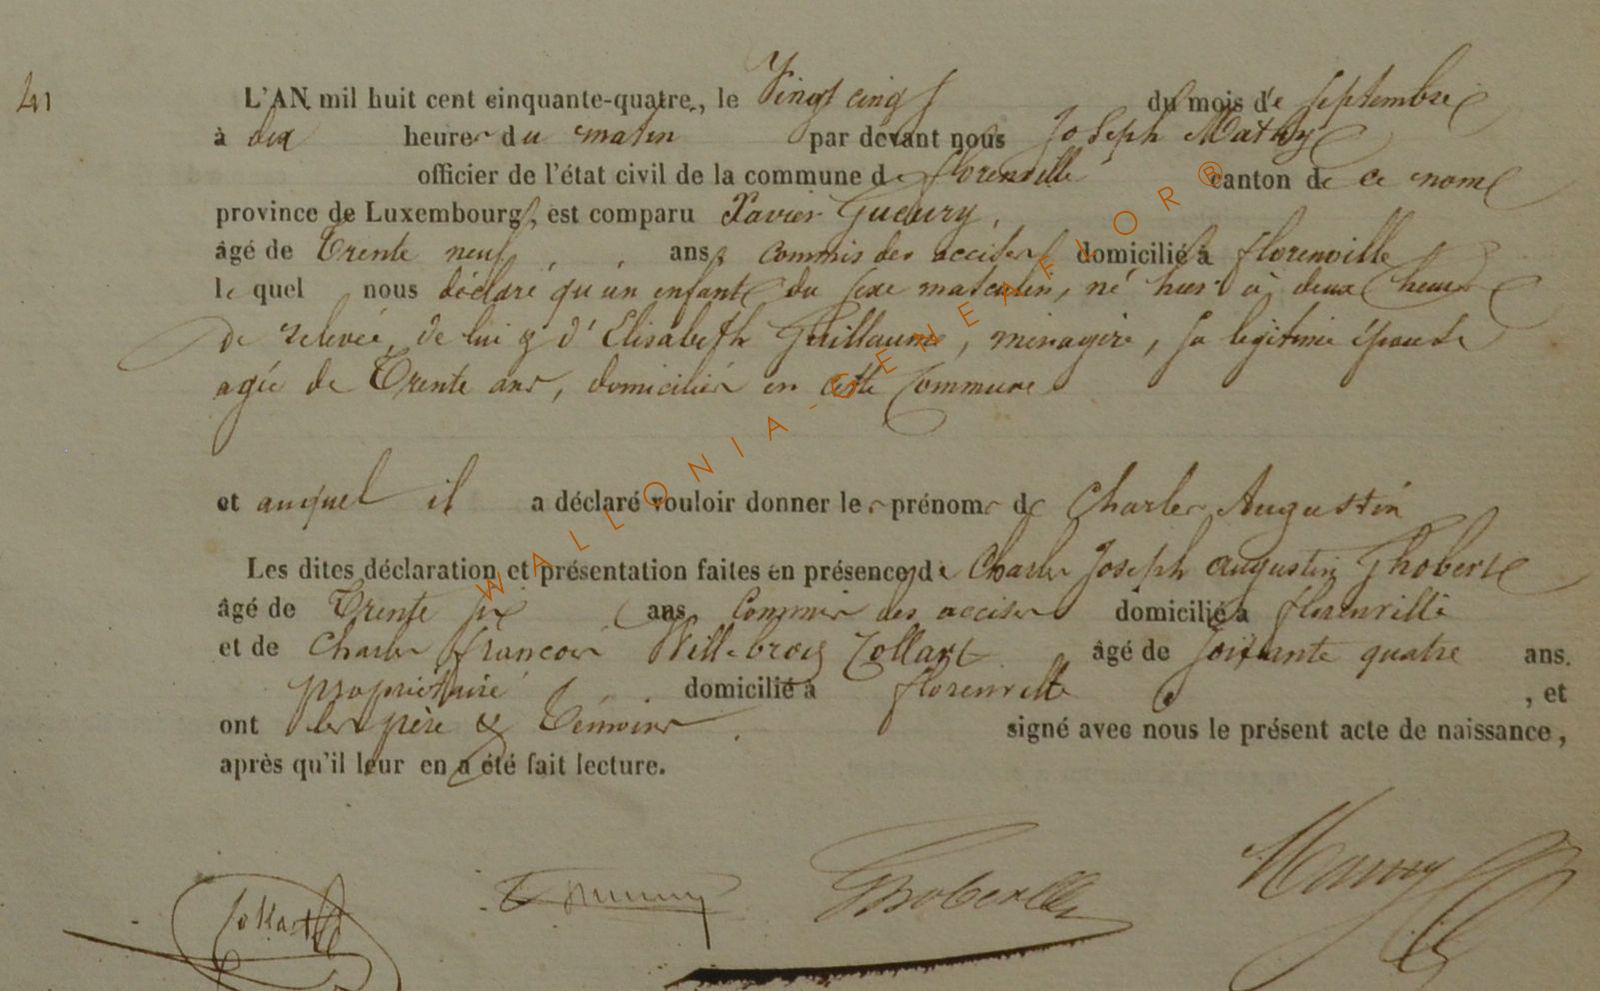 41
L'AN mil huit cent cinquante-quatre, le Vingt cinq du mois de septembre
à dix heures du matin par devant nous Joseph Mathy
officier de l'état civil de la commune de florenville canton de ce nom
province de Luxembourg, est comparu Xavier Gueury,
âgé de Trente neuf ans, commis des accises domicilié à florenville
le quel nous déclaré qu'un enfant du sexe masculin, né hier à deux heures
de relevée, de lui & d'Elisabeth Guillaume, ménagère, sa légitime épouse
agée de Trente ans, domiciliés en cette Commune
et auquel il a déclaré vouloir donner les prénoms de Charles Augustin
Les dites déclaration et présentation faites en présence de Charles Joseph Augustin
âgé de Trente six ans Commis des accises domicilié à florenville
et de Charles françois Willebrord Collart âgé de soixante quatre ans.
propriétaire domicilié à florenville, et
ont les père & Témoins signé avec nous le présent acte de naissance,
après qu'il leur en a été fait lecture.
Collart
WALLONIA-GENEAFLOR®